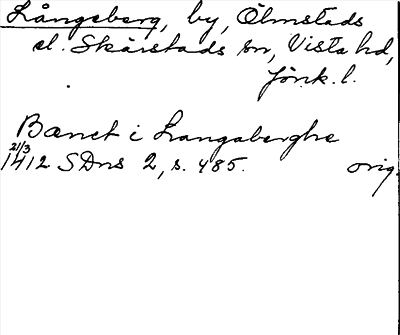 Långeberg, by, Ölmstads
el. Skärstads sn, Vista hd,
Jönk. l.
Bænct i Langaberghe
21/3
1412 SDns 2, s. 485. orig.